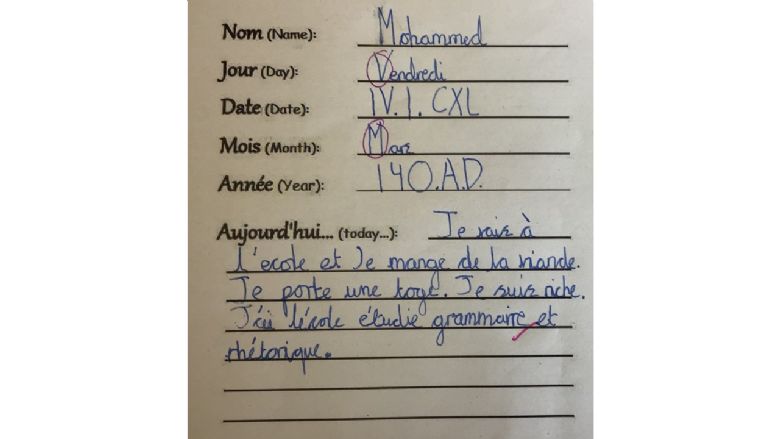 Nom (Name): Mohammed
Jour (Day): Vendredi
Date (Date): IV. I. CXL
Mois (Month): Mars
Année (Year): 140.A.D.
Aujourd'hui... (today...): Je suis à
l'ecole et Je mange de la viande.
Je porte une toge. Je suis riche.
J'ai l'école étudie grammaire et
rhétorique.